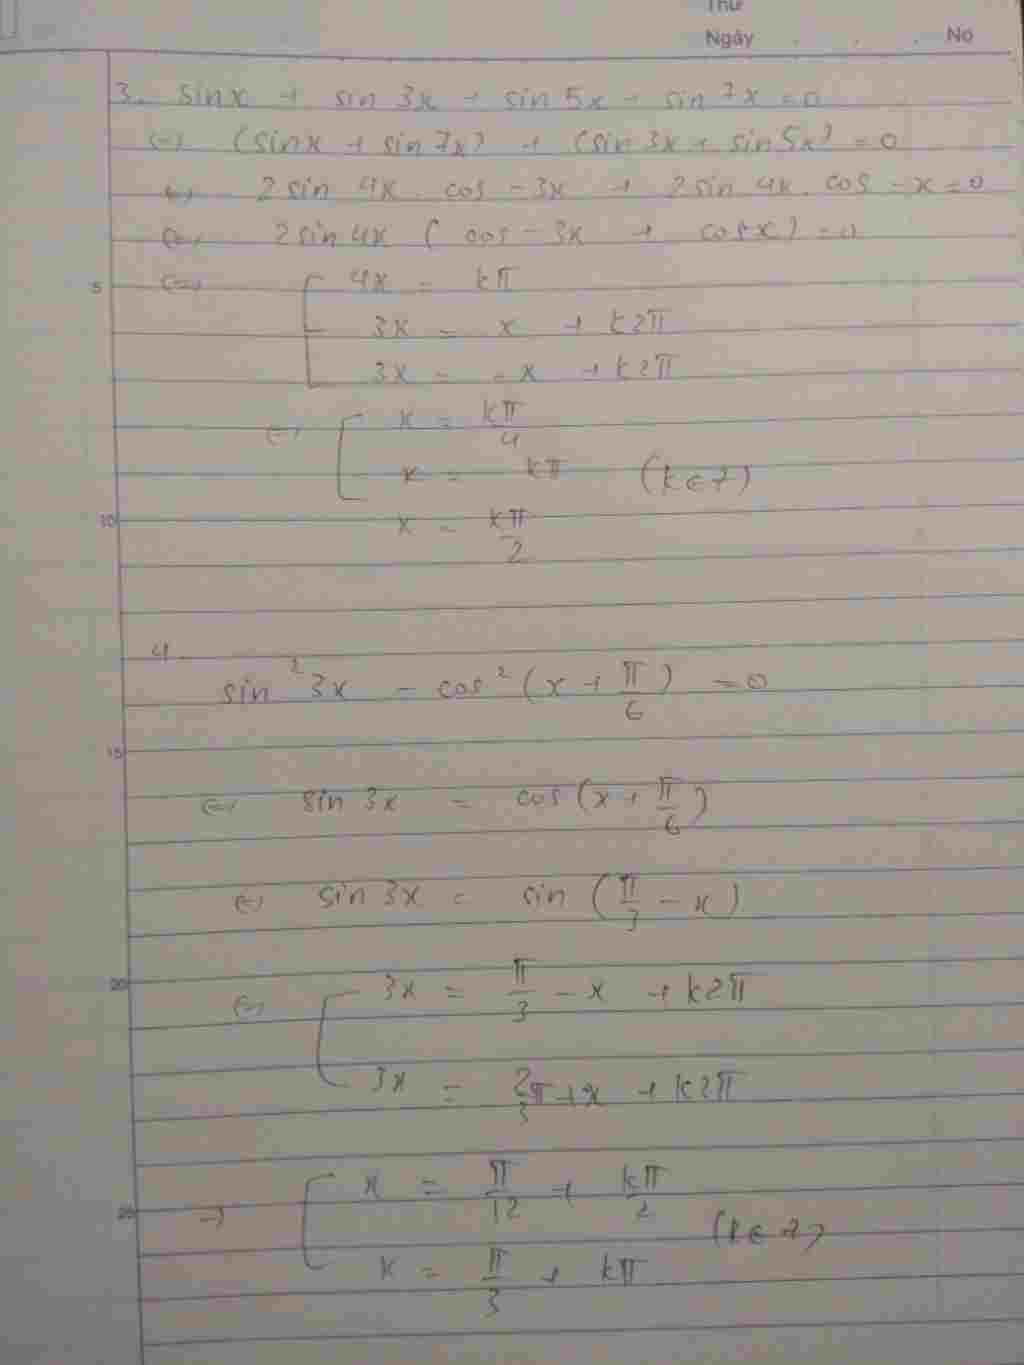 Thứ
Ngày . . . No
3. sinx + sin 3x + sin 5x + sin 7x = 0
(=) (sinx + sin 7x) + (sin 3x + sin 5x) = 0
(=) 2 sin 4x . cos -3x + 2 sin 4x . cos -x = 0
(=) 2 sin 4x ( cos -3x + cos x ) = 0
5 (=) [ 4x = kπ
3x = x + k2π
3x = -x + k2π
(=) [ x = kπ/4
x = kπ (k ∈ Z)
10 x = kπ/2
4
sin² 3x - cos² (x + π/6) = 0
15
(=) sin 3x = cos (x + π/6)
(=) sin 3x = sin (π/3 - x)
20 (=) [ 3x = π/3 - x + k2π
3x = 2/3 π + x + k2π
25 (=) [ x = π/12 + kπ/2
(k ∈ Z)
x = π/3 + kπ